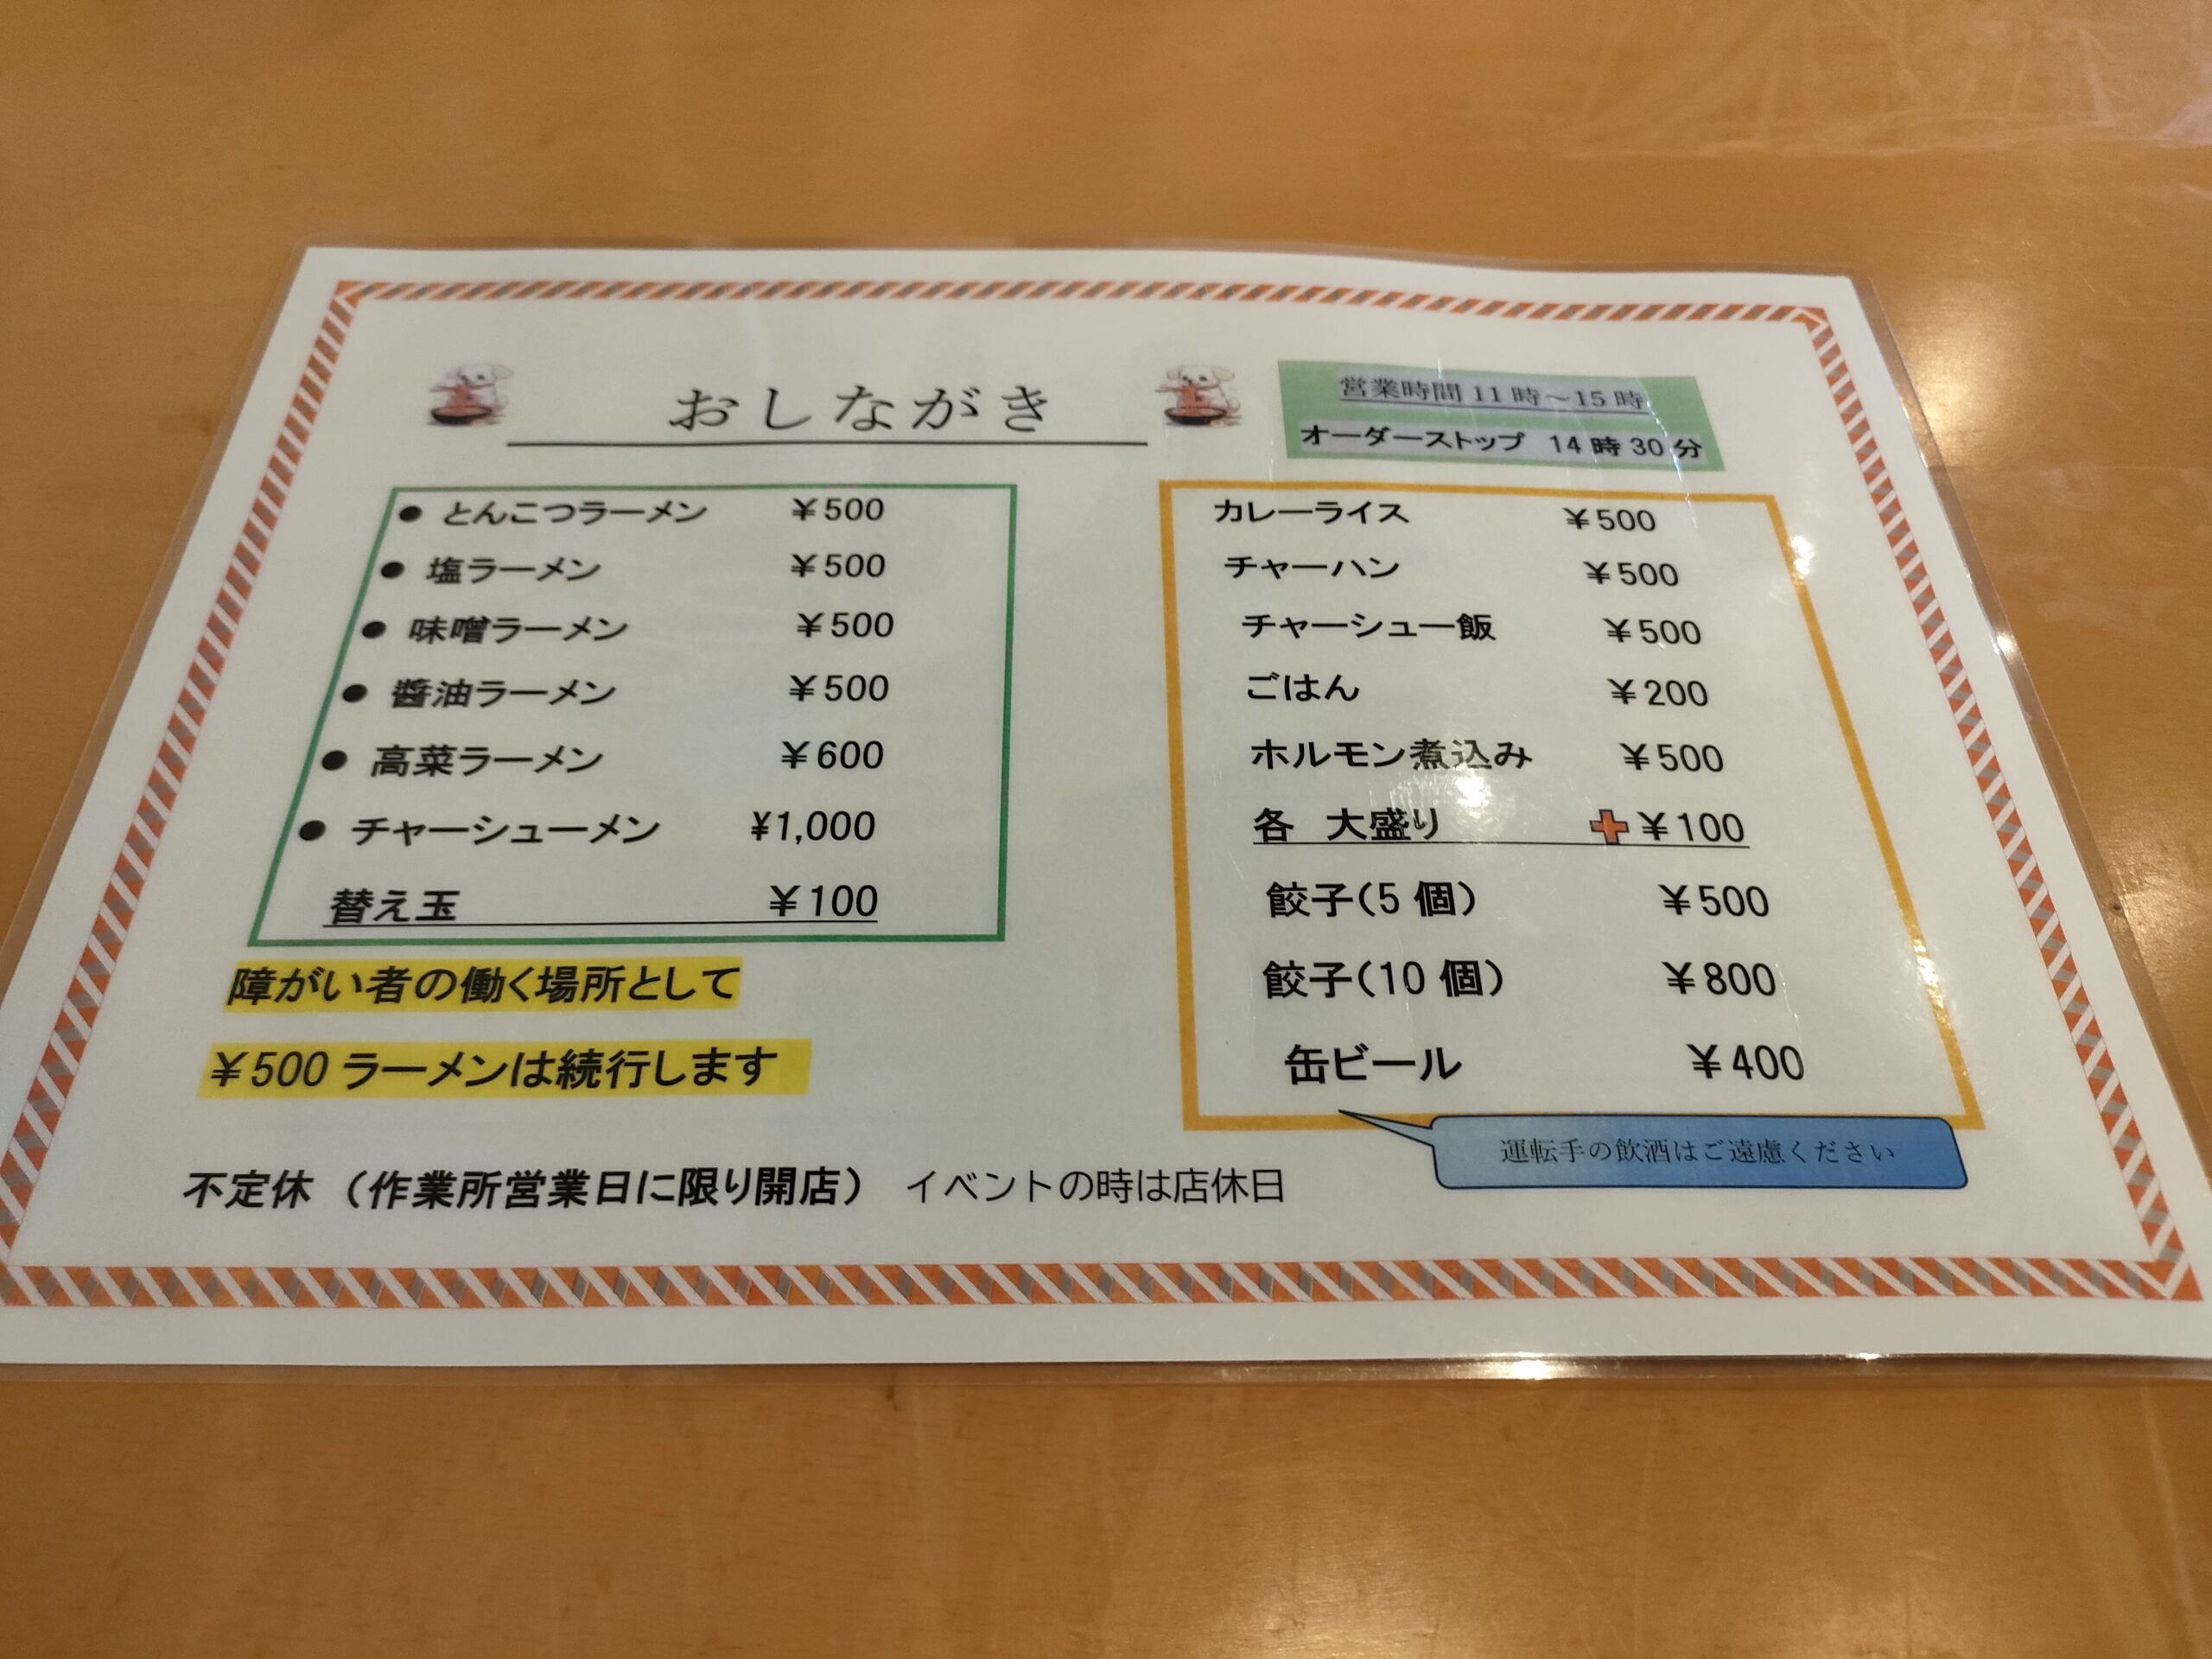 おしながき
営業時間 11時～15時
オーダーストップ 14時30分
● とんこつラーメン ￥500
● 塩ラーメン ￥500
● 味噌ラーメン ￥500
● 醬油ラーメン ￥500
● 高菜ラーメン ￥600
● チャーシューメン ¥1,000
替え玉 ￥100
障がい者の働く場所として
￥500ラーメンは続行します
カレーライス ￥500
チャーハン ￥500
チャーシュー飯 ￥500
ごはん ￥200
ホルモン煮込み ￥500
各 大盛り +￥100
餃子(5個) ￥500
餃子(10個) ￥800
缶ビール ￥400
運転手の飲酒はご遠慮ください
不定休 (作業所営業日に限り開店) イベントの時は店休日